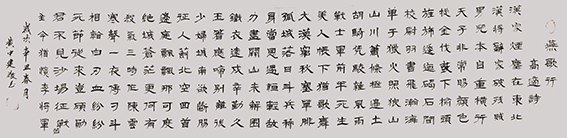 燕歌行
高適詩
漢家煙塵在東北
漢將辭家破殘賊
男兒本自重橫行
天子非常賜顏色
摐金伐鼓下榆關
旌旆逶迤碣石間
校尉羽書飛瀚海
單于獵火照狼山
山川蕭條極邊土
胡騎憑陵雜風雨
戰士軍前半死生
美人帳下猶歌舞
大漠窮秋塞草腓
孤城落日鬥兵稀
身當恩遇恆輕敵
力盡關山未解圍
鐵衣遠戍辛勤久
玉箸應啼別離後
少婦城南欲斷腸
征人薊北空回首
邊庭飄颻那可度
絕域蒼茫更何有
殺氣三時作陣雲
寒聲一夜傳刁斗
相看白刃血紛紛
死節從來豈顧勳
君不見沙場征戰苦
至今猶憶李將軍